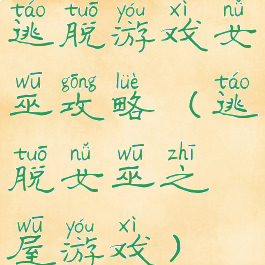 táo tuō yóu xì nǚ
逃脱游戏女
wū gōng lüè táo
巫攻略（逃
tuō nǚ wū zhī
脱女巫之
wū yóu xì
屋游戏）